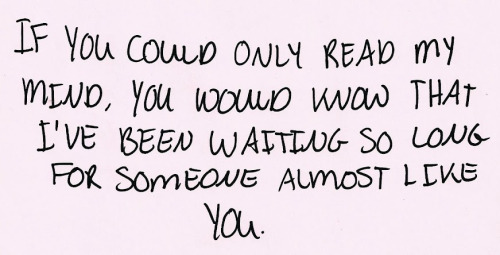 IF YOU COULD ONLY READ MY
MIND, YOU WOULD KNOW THAT
I'VE BEEN WAITING SO LONG
FOR SOMEONE ALMOST LIKE
YOU.